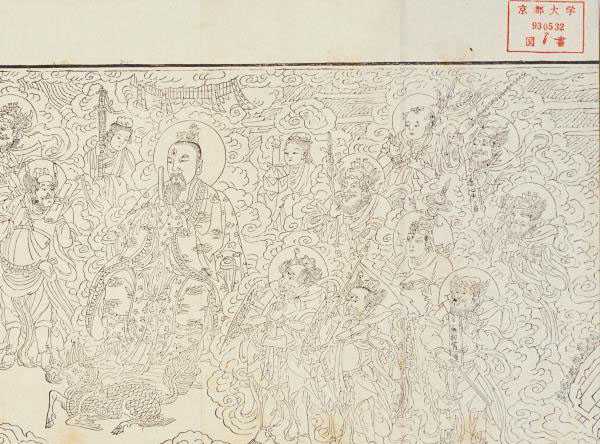 京都大学
930532
図書